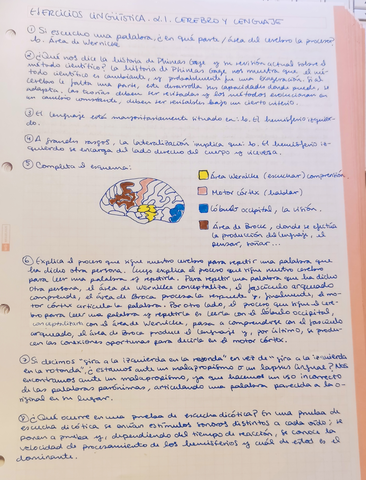 EJERCICIOS LINGÜÍSTICA. 2.1. CEREBRO Y LENGUAJE
① Si escucho una palabra, ¿en qué parte/área del cerebro la proceso?
b. Área de Wernicke
② ¿Qué nos dice la historia de Phineas Gage y su revisión actual sobre el
método científico? La historia de Phineas Gage nos muestra que el mé-
todo científico es cambiante, y probablemente fue una exageración. Si al
cerebro le falta una parte, éste desarrolla sus capacidades donde puede, se
adapta. Las teorías deben ser revisadas y los métodos evolucionan en
un camino constante, deben ser revisables bajo un cierto
③ El lenguaje está mayoritariamente situado en: b. El hemisferio izquier-
do.
④ A grandes rasgos, la lateralización implica que b. El hemisferio iz-
quierdo se encarga del lado derecho del cuerpo y viceversa.
⑤ Completa el esquema:
Área Wernicke (escuchar) comprensión
Motor córtex (hablar)
Lóbulo occipital, la visión.
Área de Broca, donde se efectúa
la producción del lenguaje, el
pensar, soñar...
⑥ Explica el proceso que sigue nuestro cerebro para repetir una palabra que
ha dicho otra persona. Luego explica el proceso que sigue nuestro cerebro
para leer una palabra y repetirla. Para repetir una palabra que ha dicho
otra persona, el área de Wernicke conceptualiza, el fascículo arqueado
comprende, el área de Broca procesa la respuesta y, finalmente, el mo-
tor córtex articula la palabra. Por otro lado, el proceso que sigue el cere-
bro para leer una palabra y repetirla es leerla con el lóbulo occipital,
conceptualiza con el área de Wernicke, pasa a comprenderse con el fascículo
arqueado, el área de Broca produce el lenguaje y, por último, se produ-
cen las conexiones oportunas para decirla en el motor córtex.
⑦ Si decimos "gira a la izquierda en la rotonda" en vez de "gira a la izquierda
en la rotonda", ¿estamos ante un malapropismo o un lapsus linguae? Nos
encontramos ante un malapropismo, ya que hacemos un uso incorrecto
de las palabras parónimas, articulando una palabra parecida a la o-
riginal en su lugar.
⑧ ¿Qué ocurre en una prueba de escucha dicótica? En una prueba de
escucha dicótica se envían estímulos sonoros distintos a cada oído; se
ponen a prueba y, dependiendo del tiempo de reacción, se conoce la
velocidad de procesamiento de los hemisferios y cuál de ellos es el
dominante.